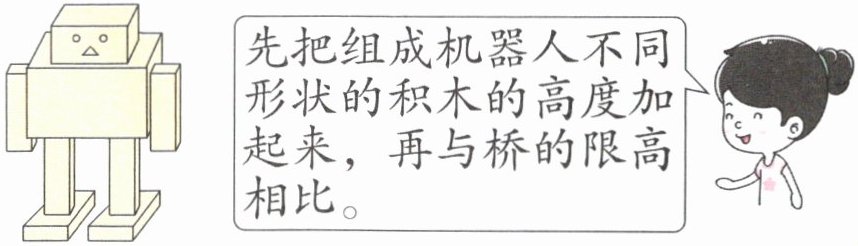 先把组成机器人不同
形状的积木的高度加
起来，再与桥的限高
相比。